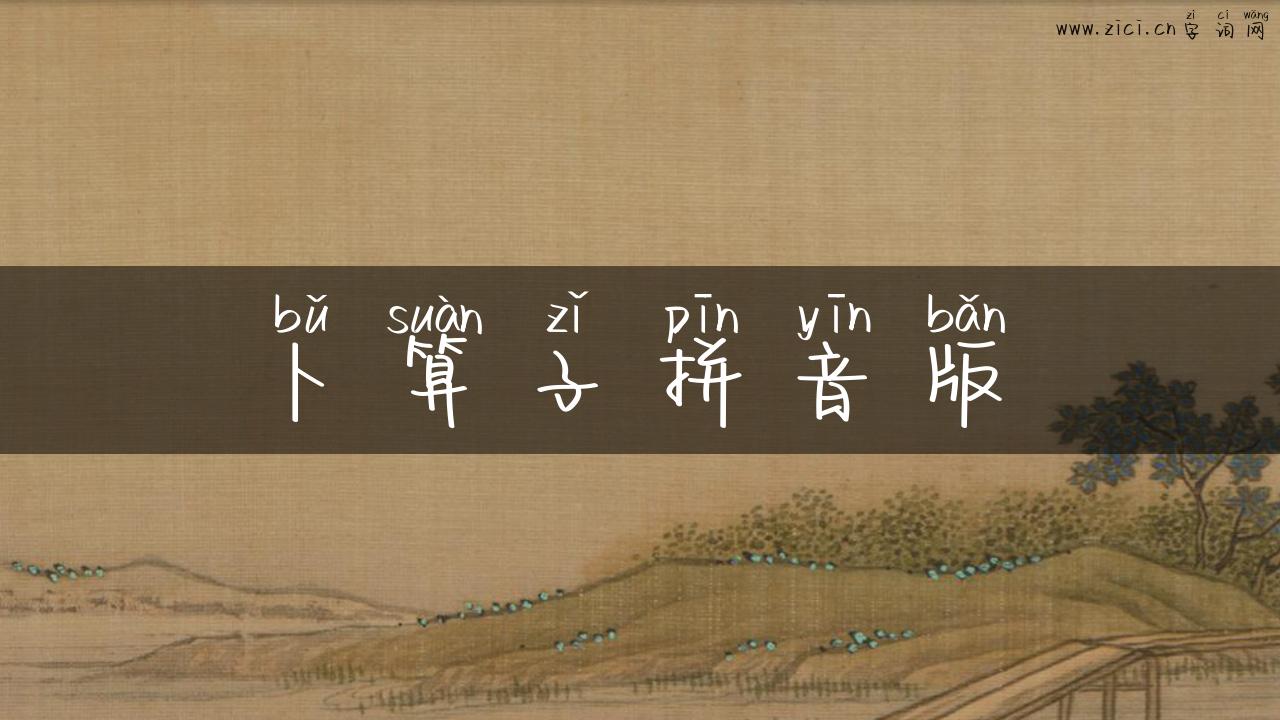 zì cí wǎng
www.zici.cn 字 词 网
bǔ suàn zǐ pīn yīn bǎn
卜 算 子 拼 音 版